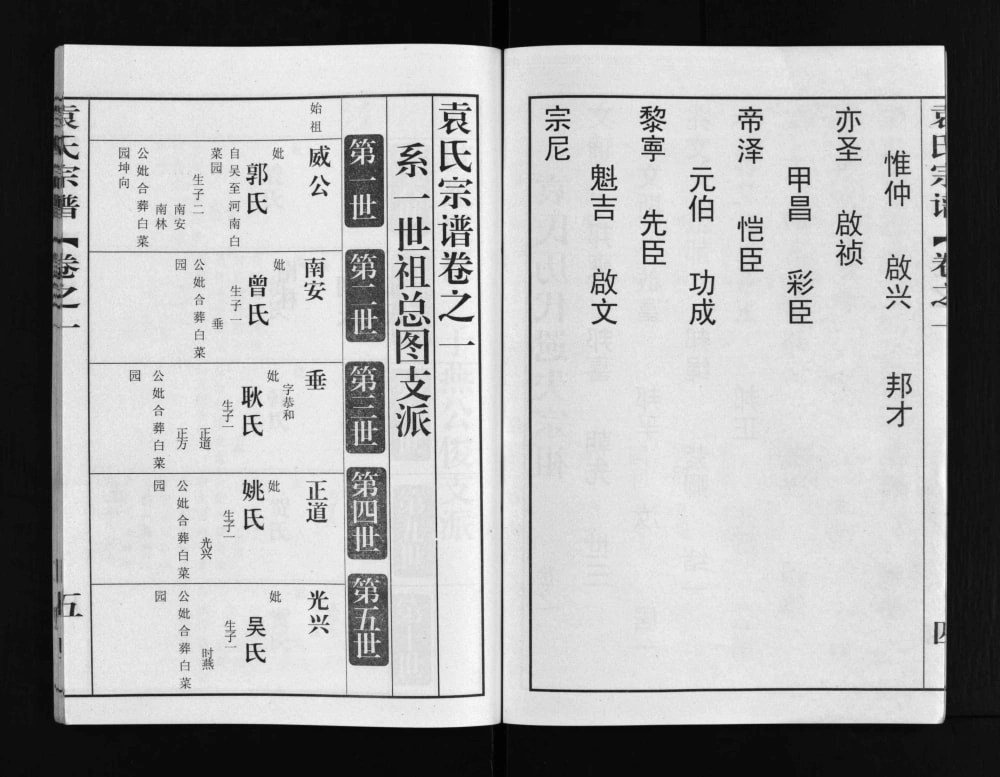 袁氏宗谱【卷之一
四
惟仲 啟兴 邦才
亦圣 啟祯
甲昌 彩臣
帝泽 恺臣
元伯 功成
黎寕 先臣
魁吉 啟文
宗尼
袁氏宗谱卷之一
系一世祖总图支派
第一世
第二世
第三世
第四世
第五世
始祖
威公
妣
郭氏
自吴至河南白
菜园
生子二
南安
南林
公妣合葬白菜
园坤向
南安
妣
曾氏
生子一
垂
公妣合葬白菜
园
垂
字恭和
妣
耿氏
生子一
正道
正方
公妣合葬白菜
园
正道
妣
姚氏
生子一
光兴
公妣合葬白菜
园
光兴
妣
吴氏
生子一
时燕
公妣合葬白菜
园
袁氏宗谱【卷之一
五